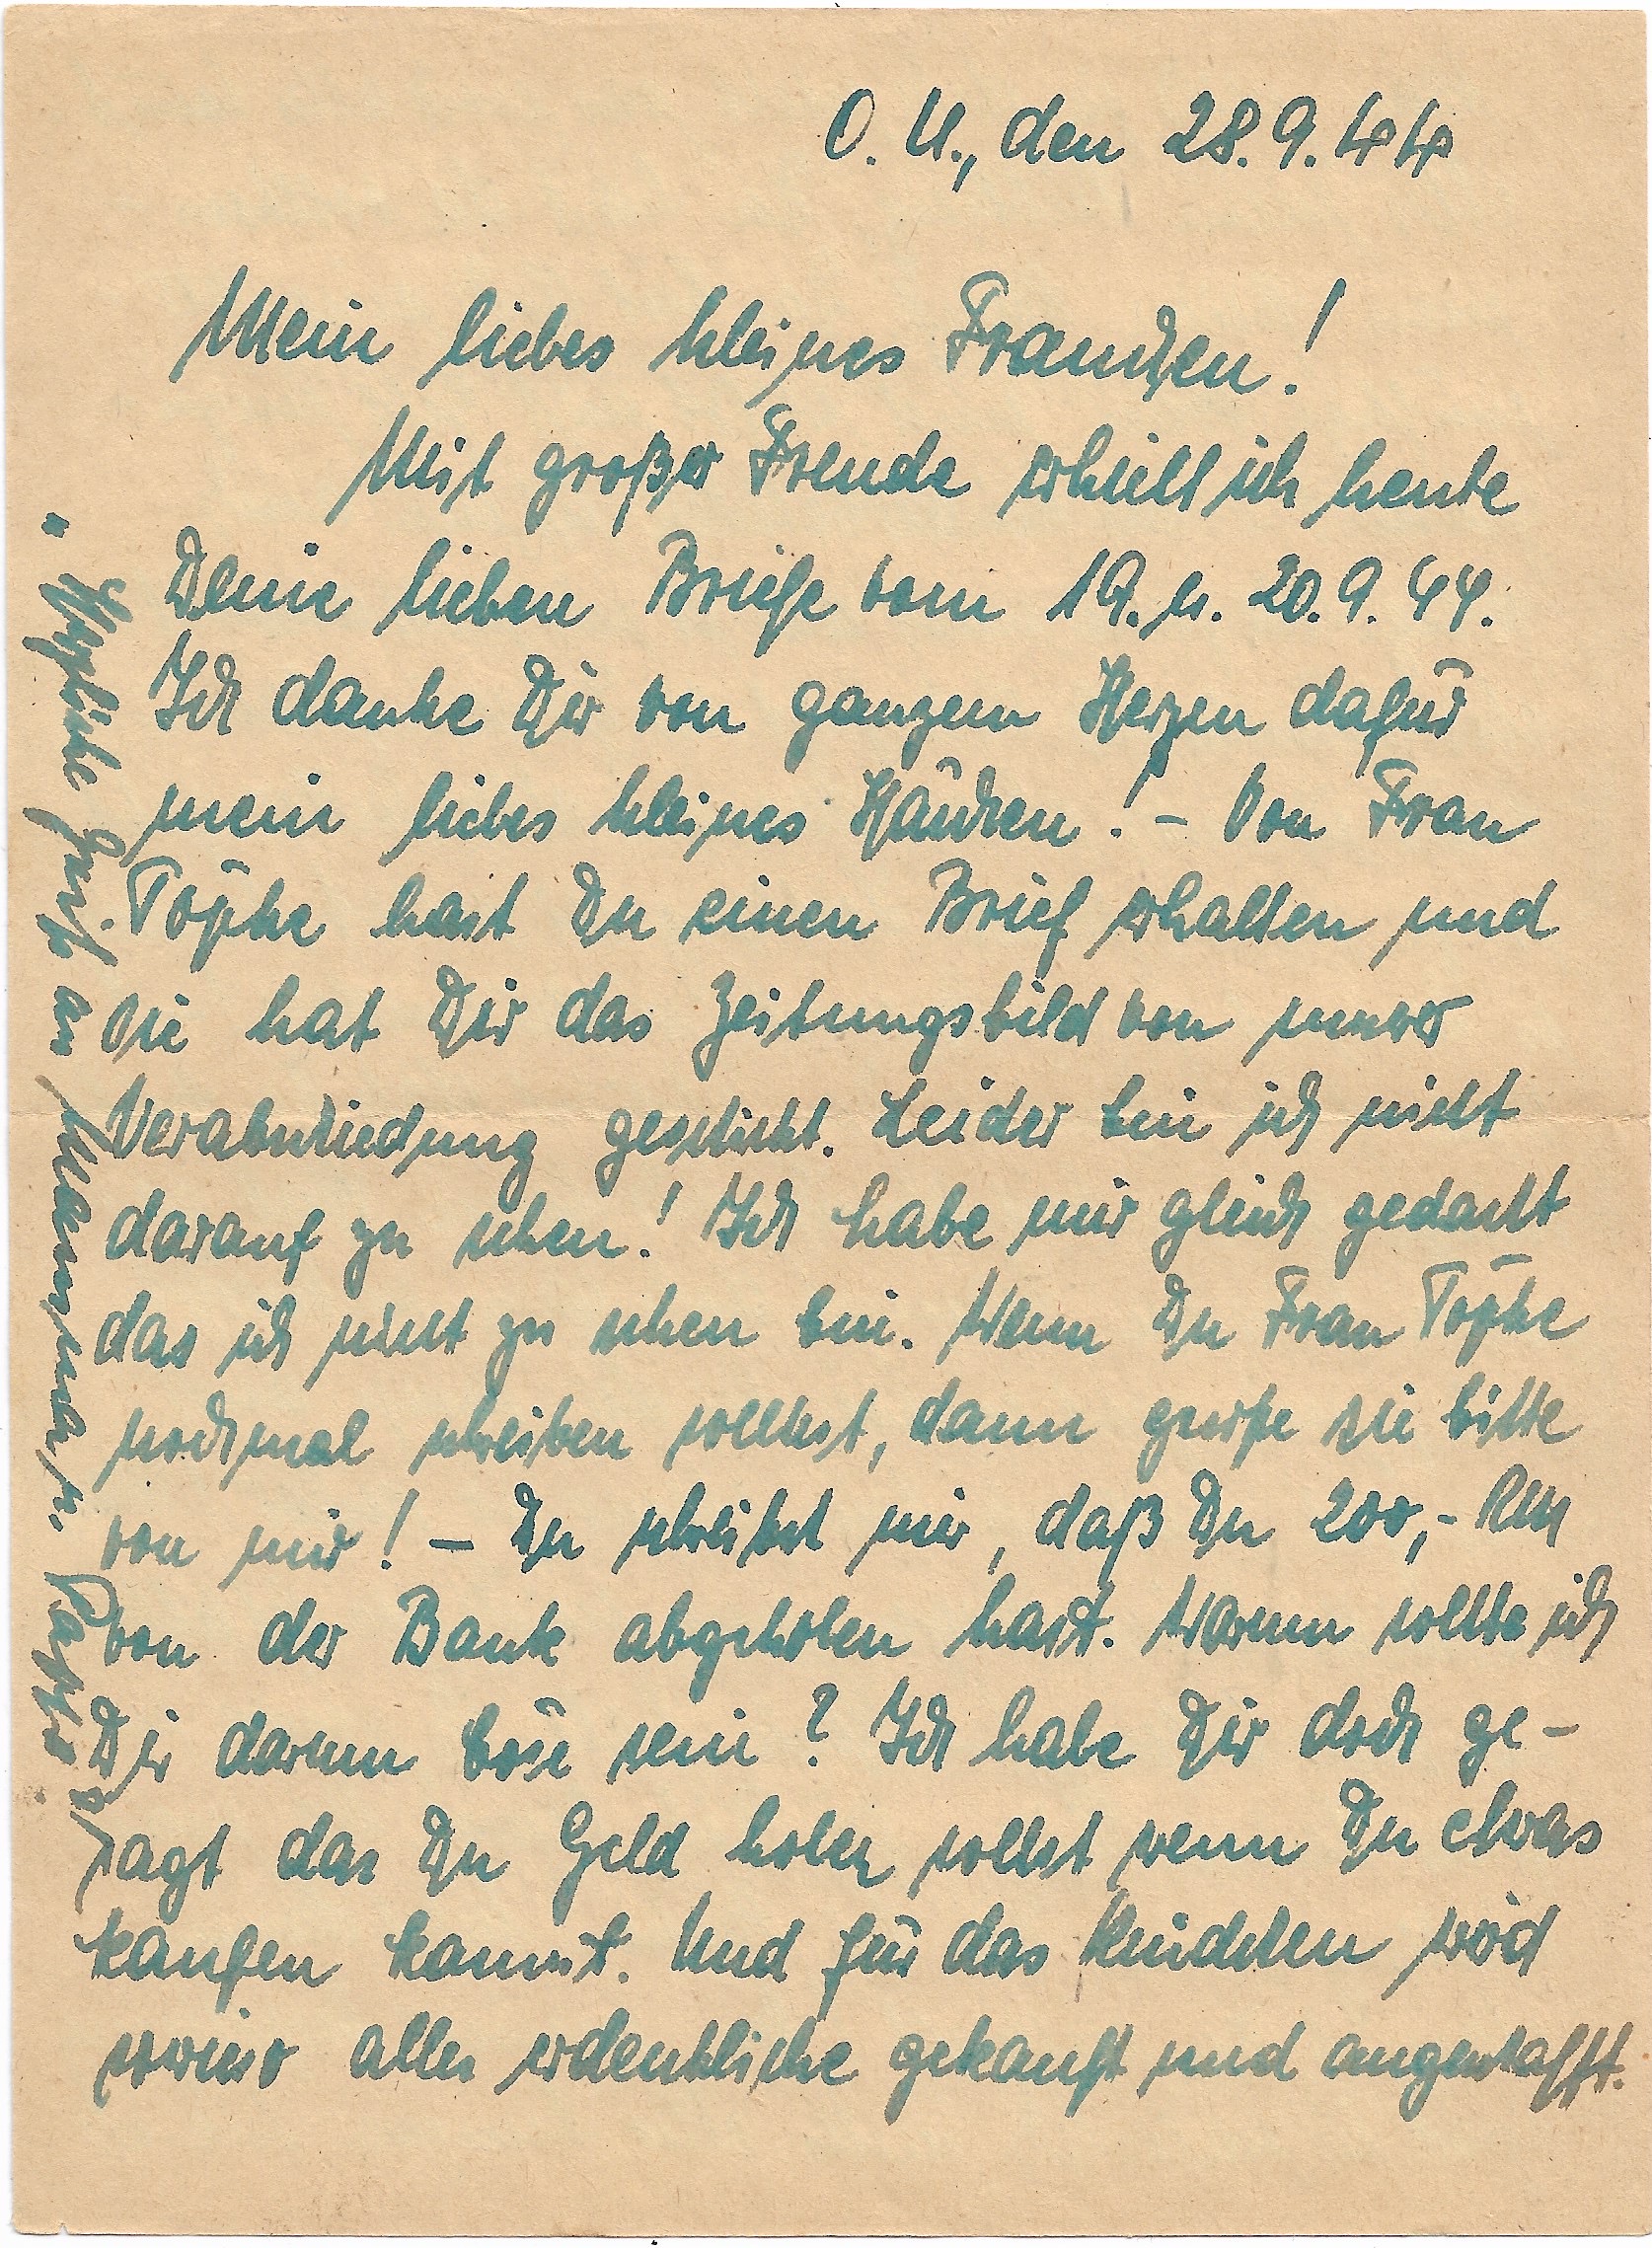 O. U., den 28.9.44
Mein liebes kleines Frauchen!
Mit großer Freude erhielt ich heute
Deine lieben Briefe vom 19. u. 20.9.44.
Ich danke Dir von ganzem Herzen dafür
mein liebes kleines Häschen! - Von Frau
Töpke hast Du einen Brief erhalten und
sie hat Dir das Zeitungsbild von unserer
Verabschiedung geschickt. Leider bin ich nicht
darauf zu sehen! Ich habe mir gleich gedacht
das ich nicht zu sehen bin. Wenn Du Frau Töpke
nochmal schreiben solltest, dann grüße sie bitte
von mir! - Du schreibst mir, daß Du 200,- RM
von der Bank abgehoben hast. Warum sollte ich
Dir darum böse sein? Ich habe Dir doch ge-
sagt das Du Geld holen sollst wenn Du etwas
kaufen kannst. Und für das Kindchen wird
sowieso alles erdenkliche gekauft und angeschafft.
Herzliche Grüße an Mama u. Papa